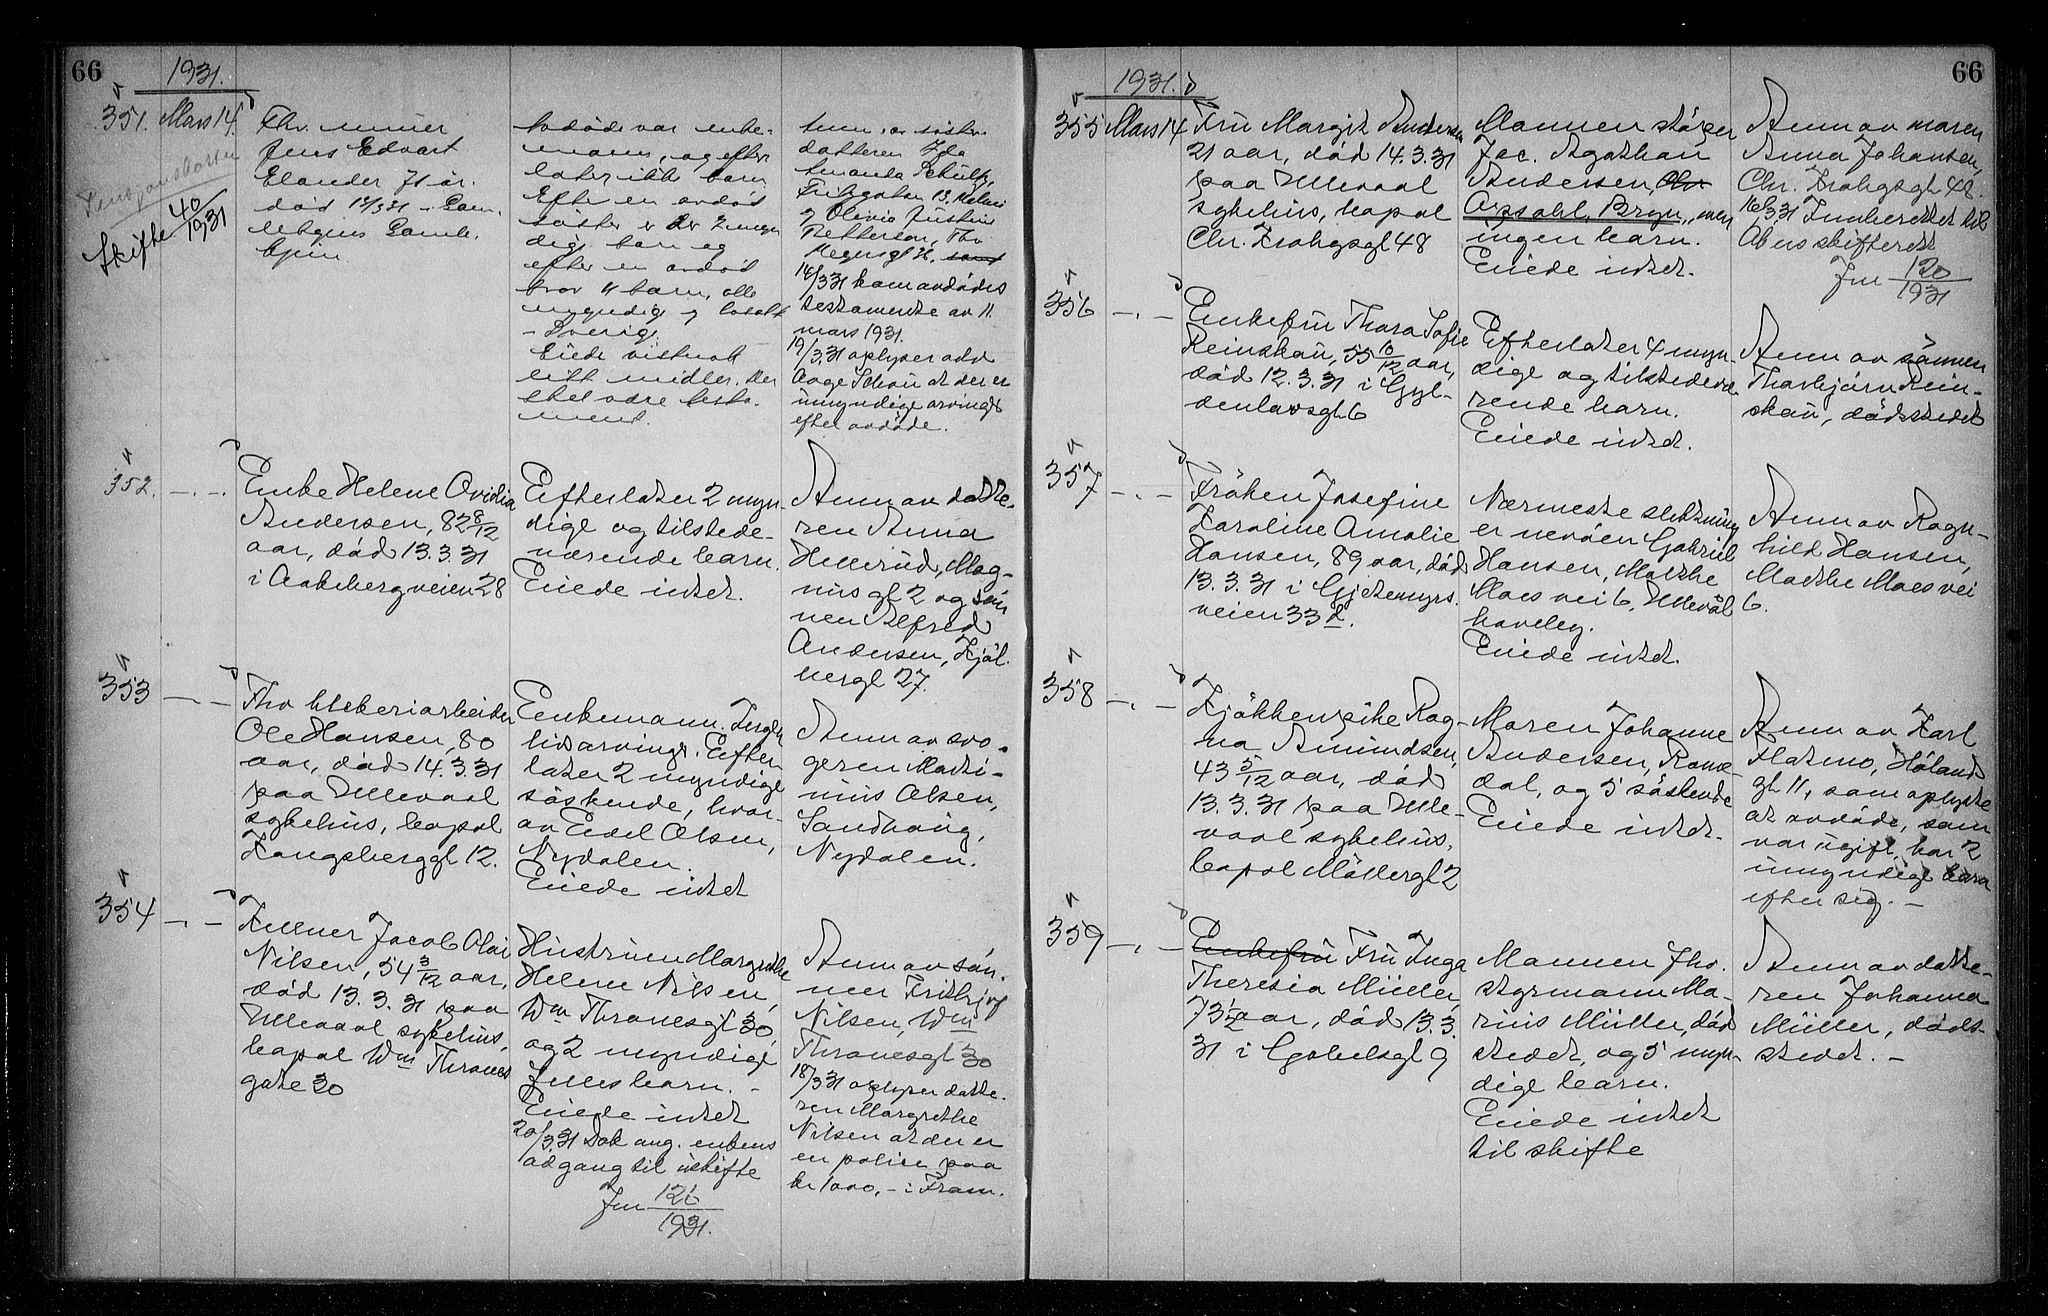 66
1931.
351. Mars 14.
Skifte 40/1931
Fhv. murer
Jens Edvart
Elander 71 år.
død 12/3 31 Gam.
lebyens Gamle.
hjem
Avdøde var enke-
mann, og efter
later ikke barn
Efter en avdød
søster er der 2 myn
dige barn og
efter en avdød
bror 4 barn, alle
myndige og bosatt
i Sverige.
Eiede visstnok
litt midler. Der
skal være testa-
ment.
Anm. av søster
datteren Ida
Amanda Schultz,
og Olivia Justine
Pettersen, Thv
Meyersgt
14/3 31 kom avdødes
testamente av 11
mars 1931.
19/3.31 oplyser adv
Aage Schou at der er
umyndige arvinger
efter avdøde.
352. -"-
Enke Helene Ovidia
Andersen, 82 8/12
aar, død 13.3.31
i Aakebergveien 28
Efterlater 2 myn-
dige og tilstede-
værende barn.
Eiede intet.
Anm av datte-
ren Anna
Hellerud, Mag-
nus gt 2 og søn
nen Alfred
Andersen, Kjøl-
nergt 27.
353 -"-
Fhv blekeriarbeider
Ole Hansen, 80
aar, død 14.3.31
paa Ullevaal
sykehus, bopæl
Kongsberggt 12.
Enkemann. Ingen
livsarvinger. Efter-
later 2 myndige
søskende, hvor-
av Emil Olsen,
Nydalen.
Eiede intet
Anm av svo-
geren Marti-
nius Olsen,
Sandhaug,
Nydalen.
354 -"-
Kelner Jacob Olai
Nilsen, 54 3/12 aar,
død 13.3.31 paa
Ullevaal sykehus,
bopæl Wm Thranes
gate 30
Hustruen Margrethe
Helene Nilsen,
Wm Thranesgt 30,
og 2 myndige
fellesbarn. -
Eiede intet
20/3.31 Dok ang. enkens
adgang til uskifte
Jnr 126/1931.
Anm av søn-
nen Frithjof
Nilsen, Wm
Thranesgt 30
18/3 31 oplyser datte-
ren Margrethe
Nilsen at der er
en polise paa
kr 1000,- i Fram.
66
1931.
355 Mars 14
Fru Margit Andersen
21 aar, død 14.3.31
paa Ullevaal
sykehus, bopæl
Chr. Krohgsgt 48
Mannen støper
Jac. Agathan
Andersen, Chr
Opsahl, Bryn, men
ingen barn.
Eiede intet.
Anm av moren
Anna Johansen,
Chr. Krohgsgt 48.
16/3 31 Innberettet til
Akers skifterett
Jnr 120/1931
356 -"-
Enkefru Thora Sofie
Reinskau, 55 10/12 aar,
død 12.3.31 i Gyl-
denløvsgt 6
Efterlater 4 myn-
dige og tilstedevæ
rende barn.
Eiede intet.
Anm av sønnen
Thorbjørn Rein-
skau, dødsstedet
357 -"-
Frøken Josefine
Karoline Amalie
Hansen, 89 aar, død
13.3.31 i Gjetemyrs-
veien 33 d.
Nærmeste slektning
er nevøen Gabriel
Hansen, Marthe
Maes vei 6, Ullevål
haveby.
Eiede intet.
Anm av Ragn-
hild Hansen,
Marthe Maes vei
6.
358 -"-
Kjøkkenpike Rag-
na Amundsen,
43 5/12 aar, død
13.3.31 paa Ulle-
vaal sykehus,
bopæl Møllergt 2
Moren Johanne
Andersen, Roms-
dal, og 5 søskende
Eiede intet.
Anm av Karl
Flatmo, Høland
gt 11, som oplyste
at avdøde, som
var ugift, har 2
umyndige barn
efter sig. -
359 -"-
Enkefru Fru Inga
Theresia Müller,
73 1/2 aar, død 13.3
31 i Gabelsgt 9
Mannen fhv.
styrmann Ma-
rius Müller, død
stedet, og 5 myn-
dige barn.
Eiede intet
til skifte
Anm av datte-
ren Johanna
Müller, døds-
stedet. -